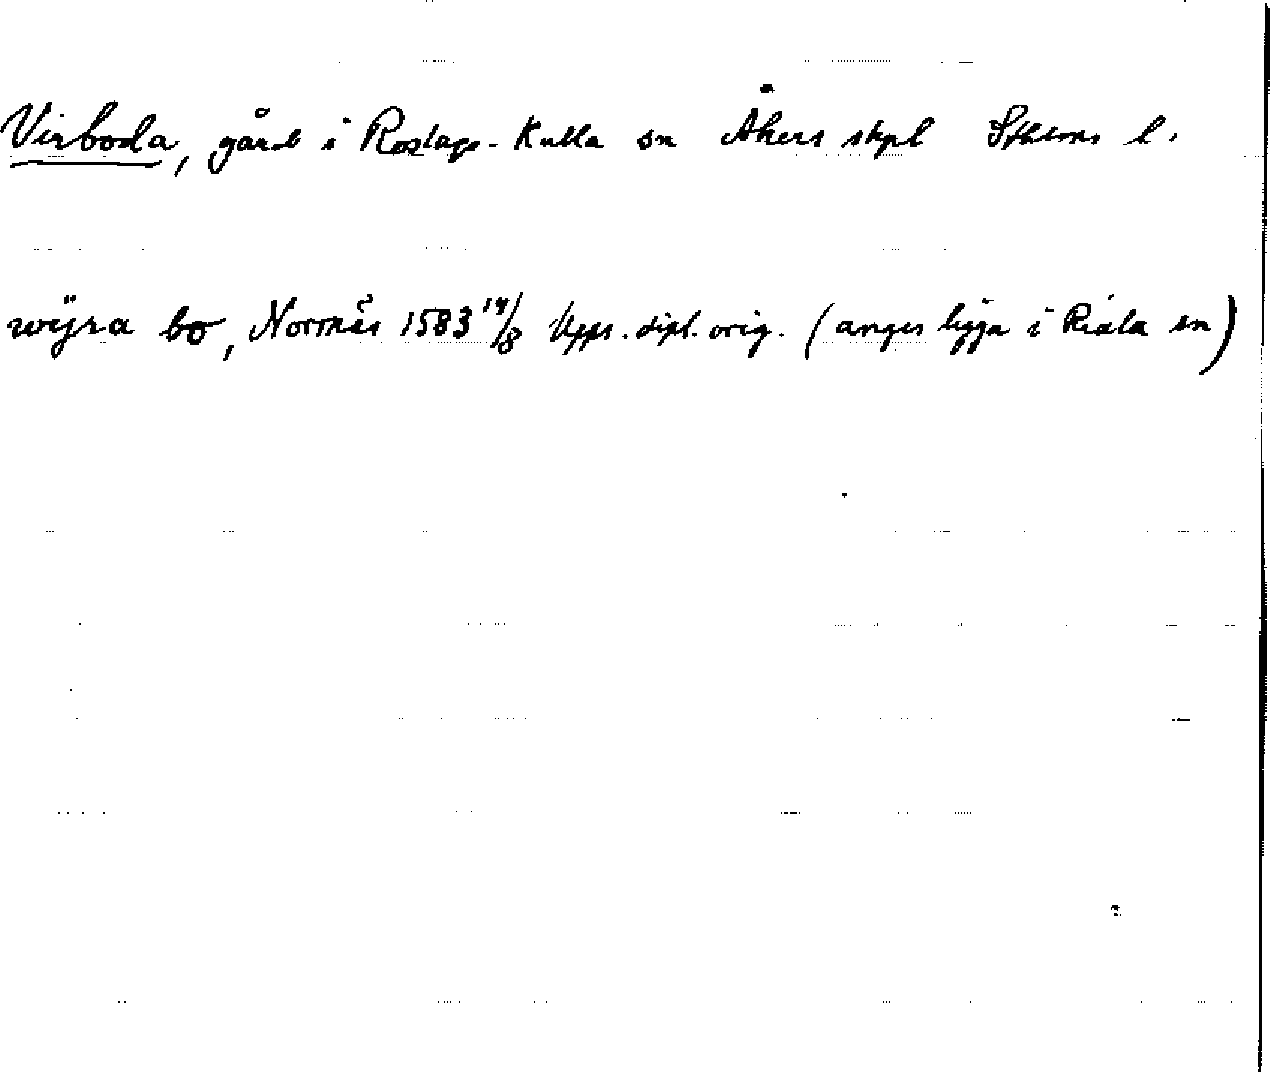 Virboda, gård i Roslags-Kulla sn Åkers skpl Sthlms l.
wÿra bo, Norrnäs 1583 14/8 Upps. dipl. orig. (anges ligga i Riala sn)